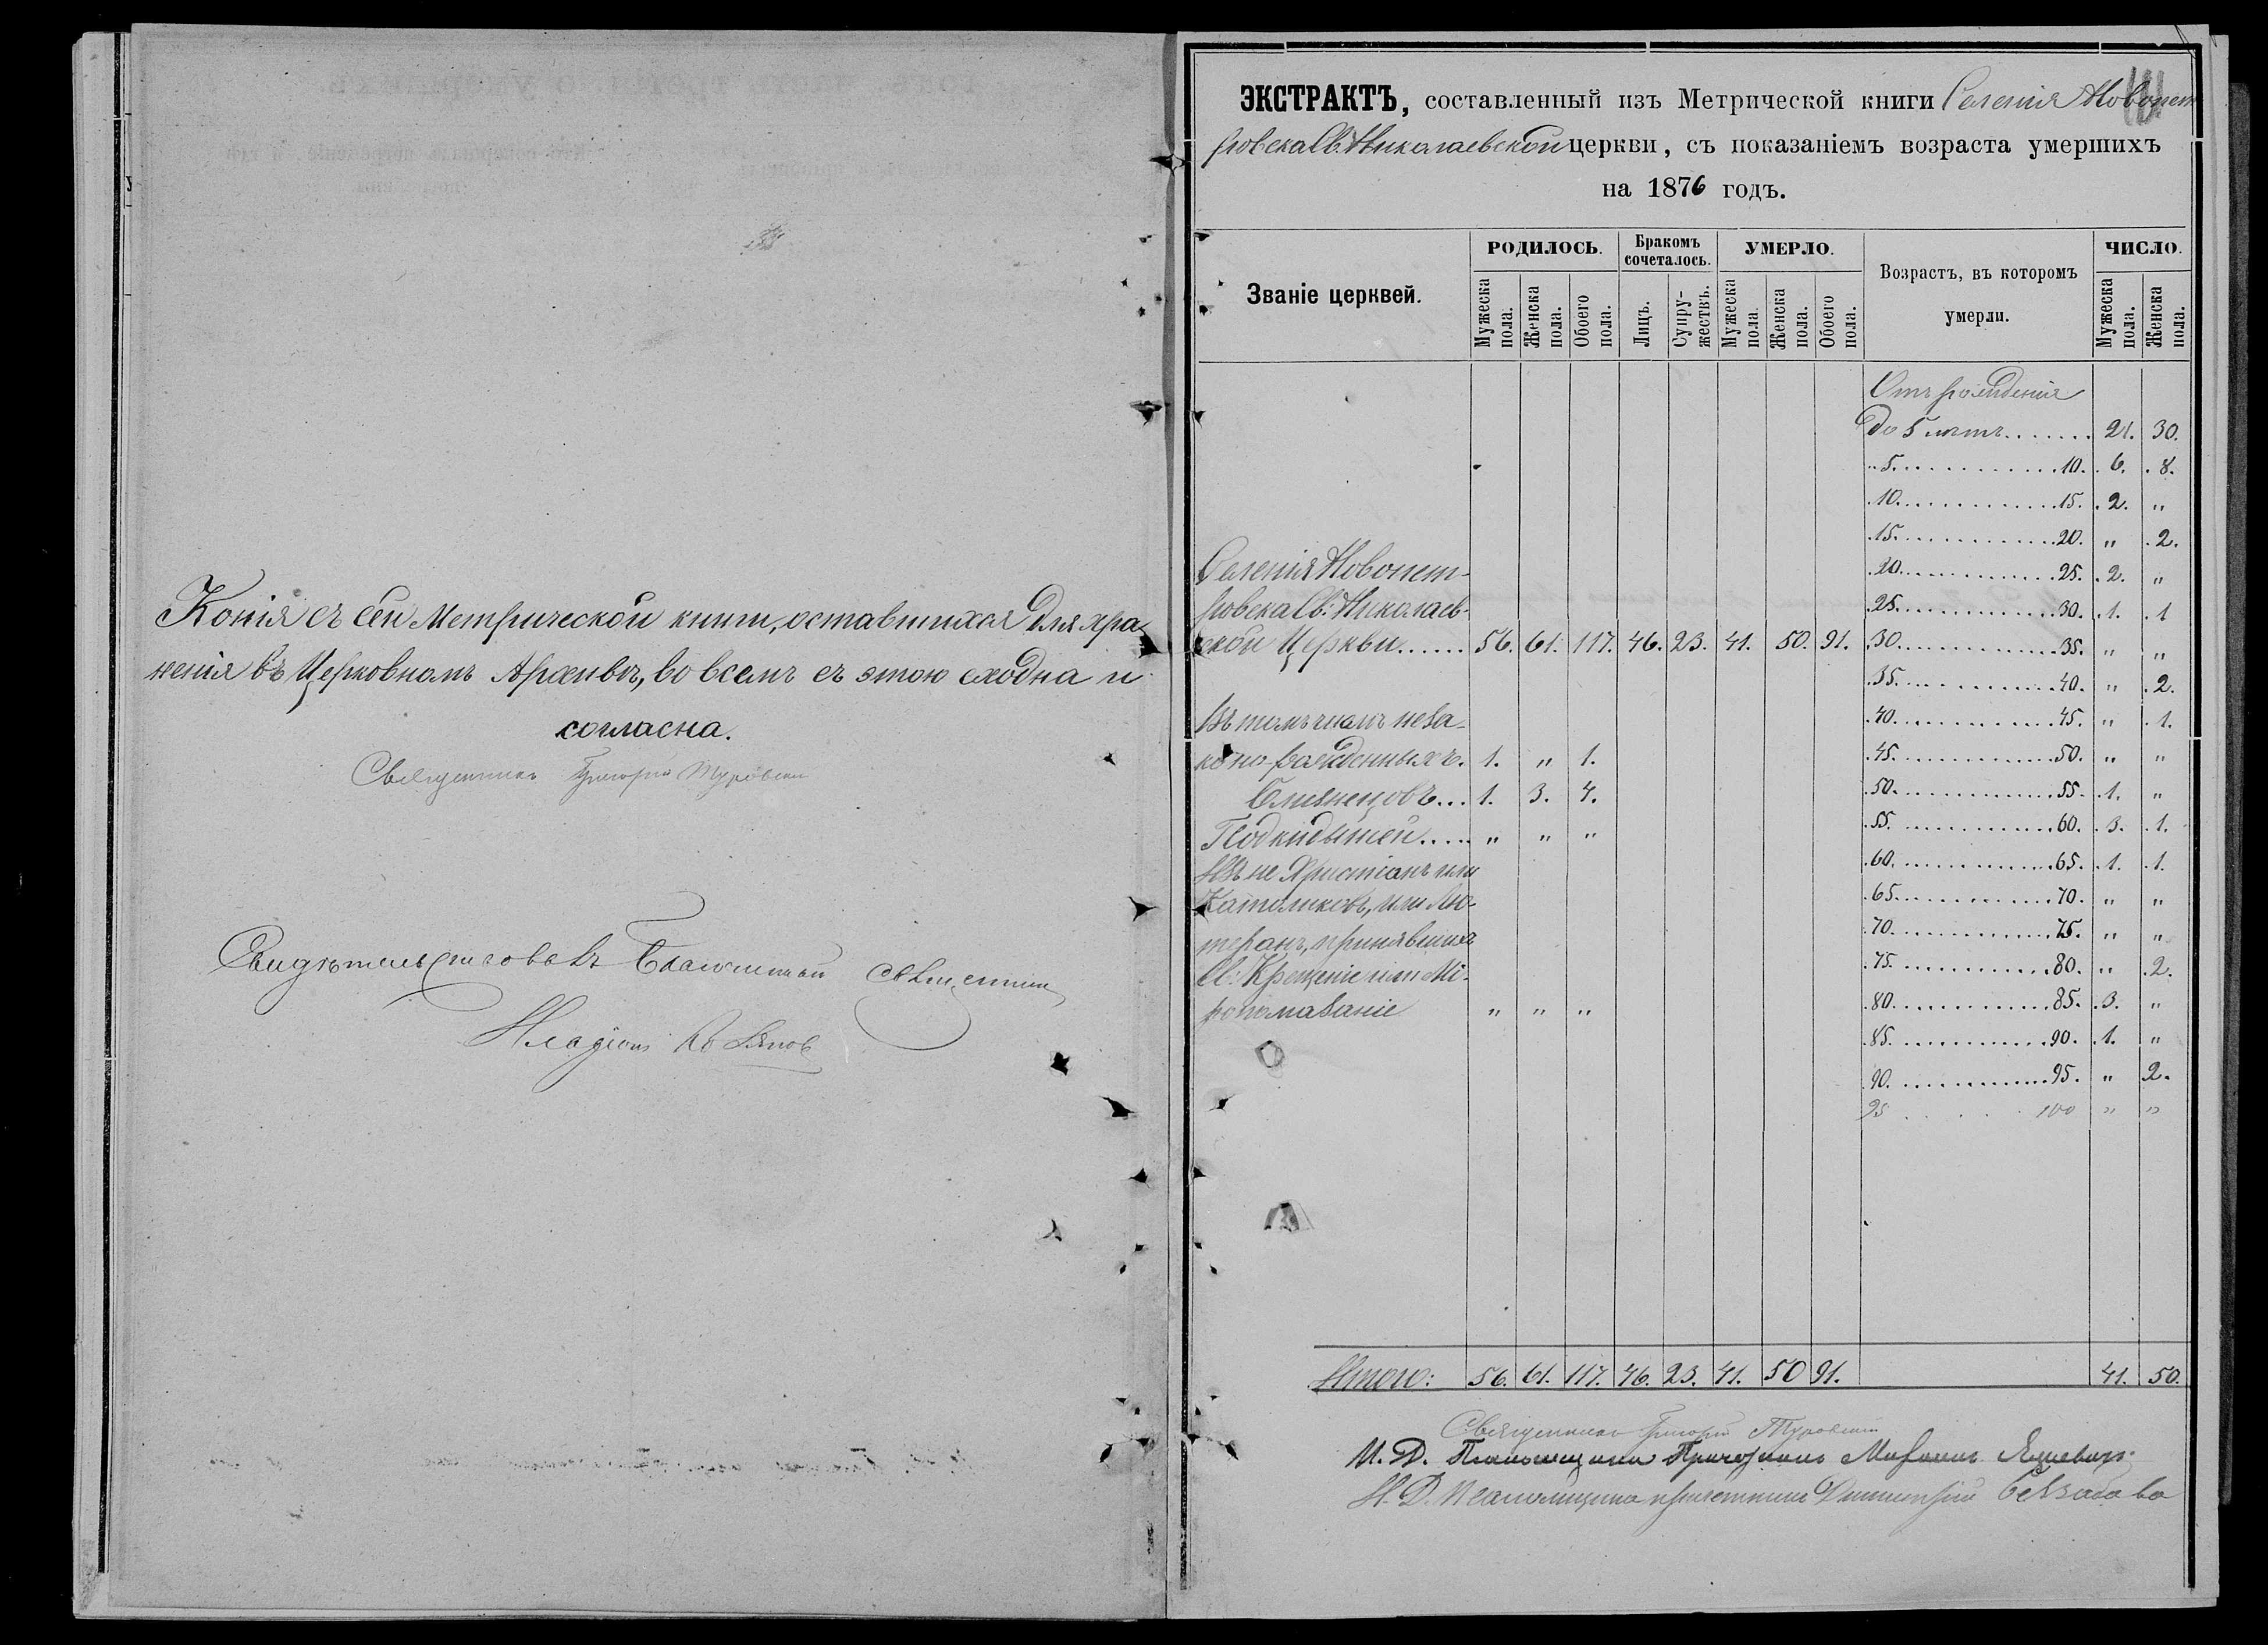 Копія съ сей Метрической книги, оставшихся для хра-
ненія въ Церковномъ Архивѣ, во всемъ съ этою сходна и
согласна.
Священникъ Григорій Туровскій
Свидѣтельствовавъ Благочинный Священникъ
ЭКСТРАКТЪ, составленный изъ Метрической книги Селенія Новопет
ровска Св. Николаевской церкви, съ показаніемъ возраста умершихъ
на 1876 годъ.
Званіе церквей. РОДИЛОСЬ. Бракомъ сочеталось. УМЕРЛО. Возрастъ, въ которомъ умерли. ЧИСЛО.
Мужеска пола. Женска пола. Обоего пола. Лицъ. Супру-жествъ. Мужеска пола. Женска пола. Обоего пола. Мужеска пола. Женска пола.
Отъ рожденія
До 5 лѣтъ....... 21. 30.
„ 5.............10. 6. 8.
10..............15. 2. „
15..............20. „ 2.
20..............25. 2. „
25..............30. 1. 1
30..............35. „ „
35..............40. „ 2.
40..............45. „ 1.
45..............50. „ „
50..............55. 1. „
55..............60. 3. 1.
60..............65. 1. 1.
65..............70. „ „
70..............75. „ „
75..............80. „ 2.
80..............85. 3. „
85..............90. 1. „
90..............95. „ 2.
95..............100 „ „
Селенія Новопет-
ровска Св: Николаев-
ской Церкви...... 56. 61. 117. 46. 23. 41. 50. 91.
Въ томъ числѣ неза-
конно-рожденныхъ. 1. „ 1.
Близнецовъ... 1. 3. 4.
Подкидышей..... „ „ „
Изъ не Христіанъ или
Католиковъ, или Лю-
теранъ, принявшихъ
Св: Крещеніе или Мѵ-
ропомазаніе „ „ „
Итого: 56. 61. 117. 46. 23. 41. 50 91. 41. 50.
Священникъ Григорій Туровскій
И. Д. Псаломщика Причетникъ
И. Д. Псаломщика причетникъ Димитрій